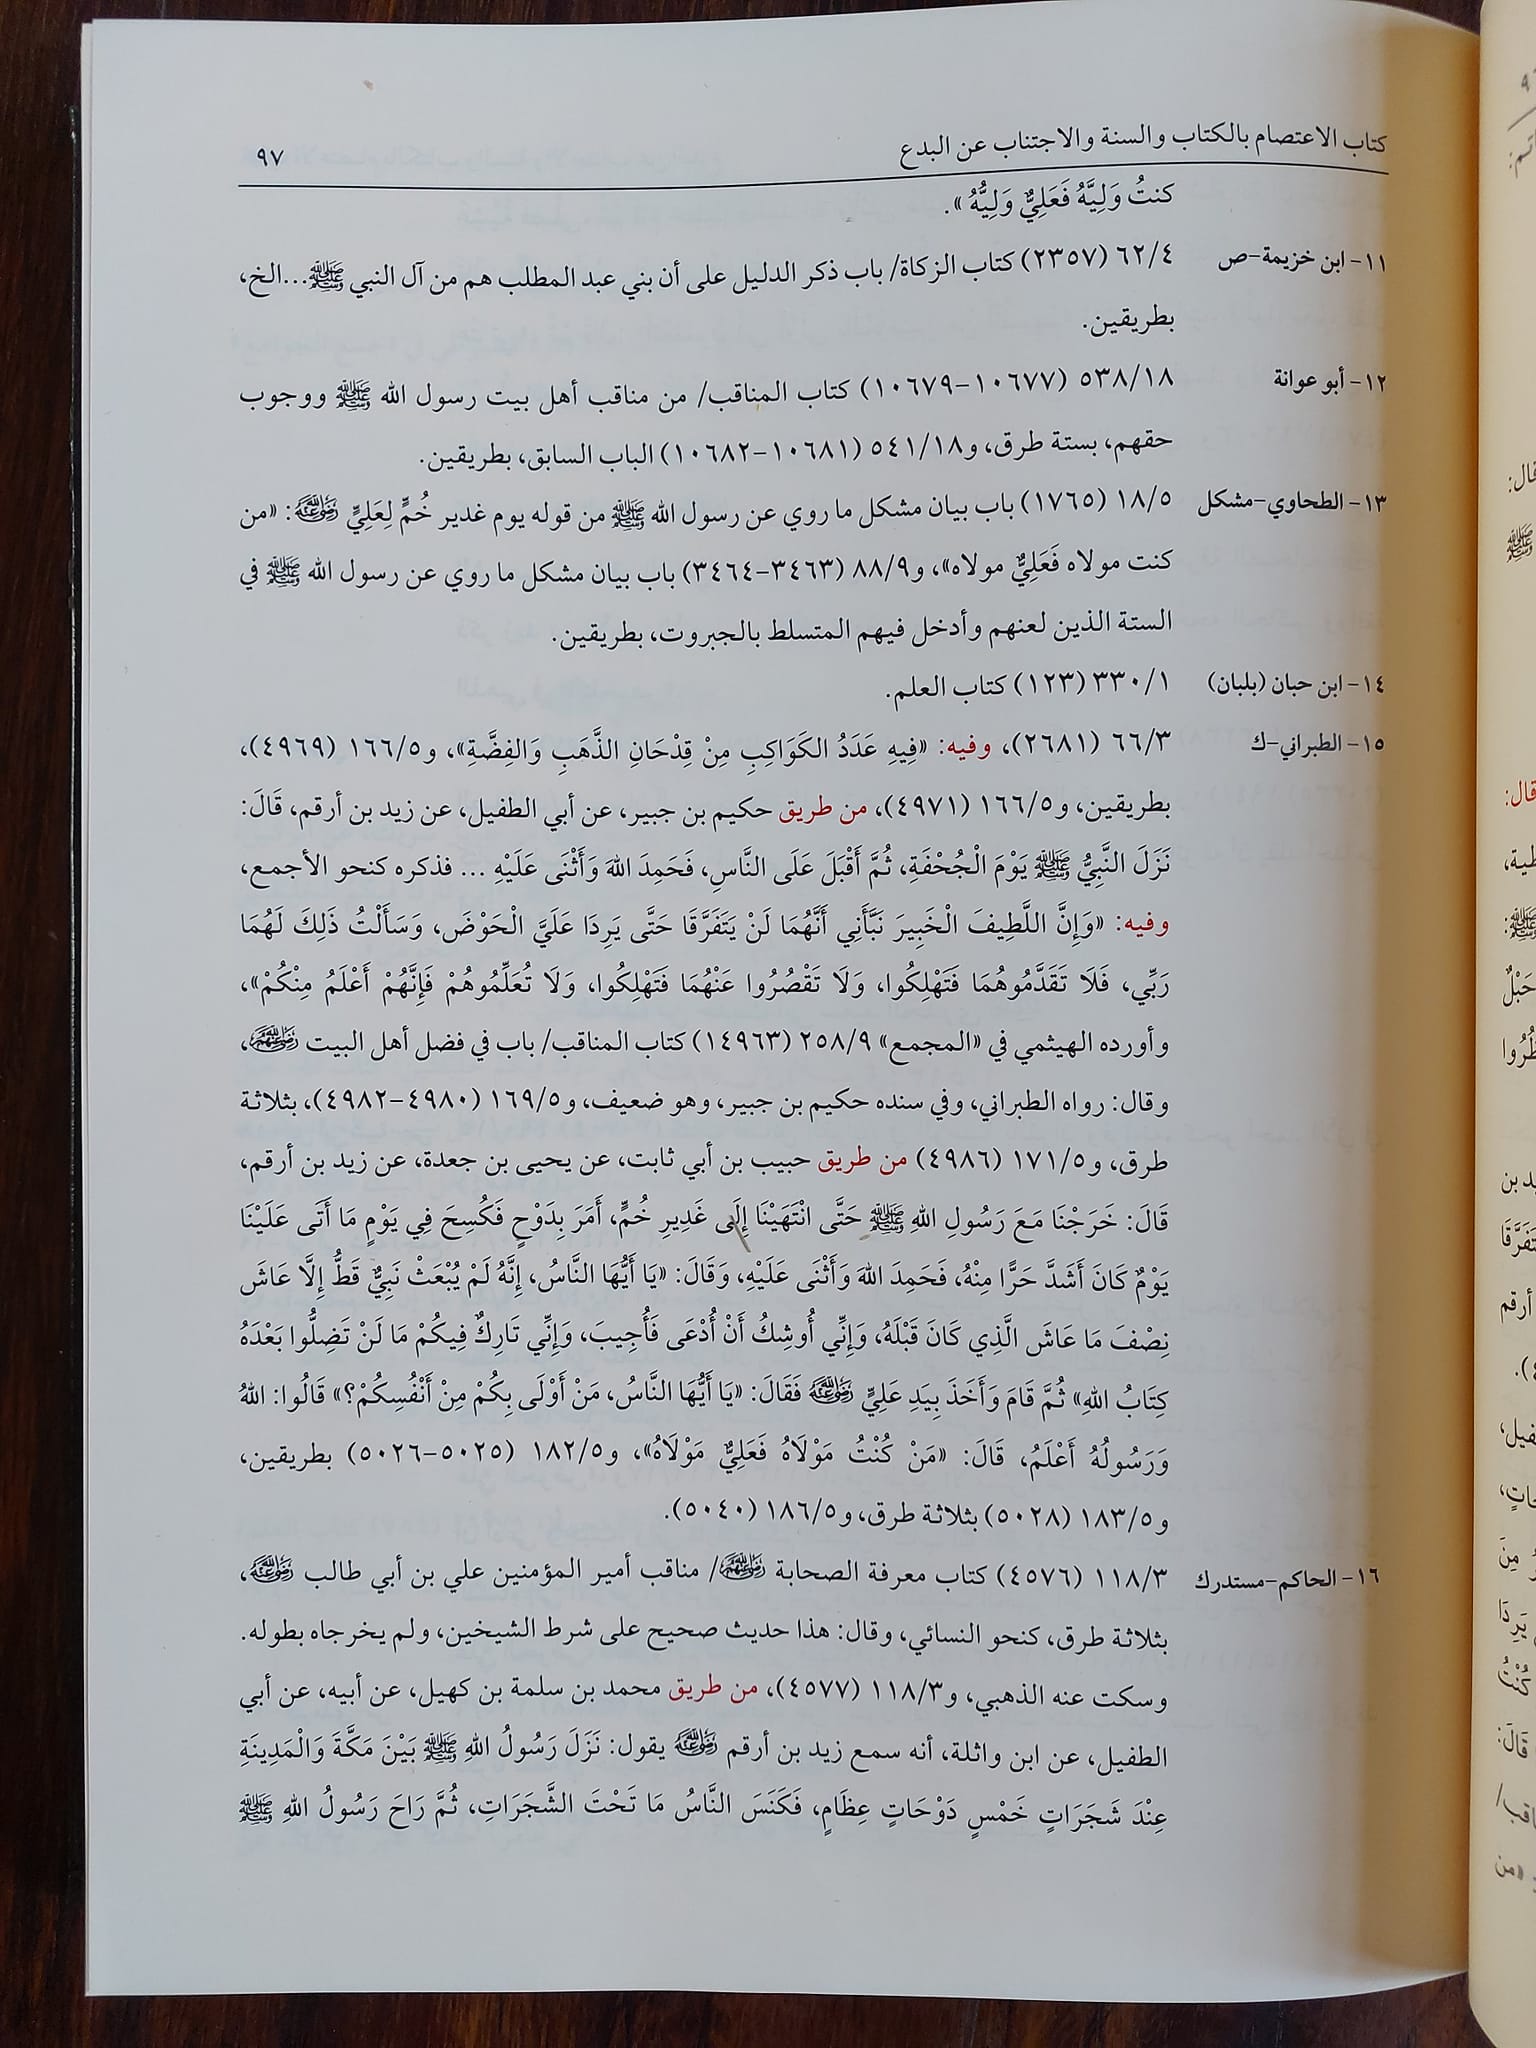 كتاب الاعتصام بالكتاب والسنة والاجتناب عن البدع ٩٧
كنتُ وَلِيَّهُ فَعَلِيٌّ وَلِيُّهُ».
١١- ابن خزيمة-ص ٦٢/٤ (٢٣٥٧) كتاب الزكاة/ باب ذكر الدليل على أن بني عبد المطلب هم من آل النبي ﷺ...الخ،
بطريقين.
١٢- أبو عوانة ٥٣٨/١٨ (١٠٦٧٧-١٠٦٧٩) كتاب المناقب/ من مناقب أهل بيت رسول الله ﷺ ووجوب
حقهم، بستة طرق، و٥٤١/١٨ (١٠٦٨١-١٠٦٨٢) الباب السابق، بطريقين.
١٣- الطحاوي-مشكل ١٨/٥ (١٧٦٥) باب بيان مشكل ما روي عن رسول الله ﷺ من قوله يوم غدير خُمٍّ لِعَلِيٍّ رضي الله عنه: «من
كنت مولاه فَعَلِيٌّ مولاه»، و٨٨/٩ (٣٤٦٣-٣٤٦٤) باب بيان مشكل ما روي عن رسول الله ﷺ في
الستة الذين لعنهم وأدخل فيهم المتسلط بالجبروت، بطريقين.
١٤- ابن حبان (بلبان) ٣٣٠/١ (١٢٣) كتاب العلم.
١٥- الطبراني-ك ٦٦/٣ (٢٦٨١)، وفيه: «فِيهِ عَدَدُ الكَوَاكِبِ مِنْ قِدْحَانِ الذَّهَبِ وَالفِضَّةِ»، و١٦٦/٥ (٤٩٦٩)،
بطريقين، و١٦٦/٥ (٤٩٧١)، من طريق حكيم بن جبير، عن أبي الطفيل، عن زيد بن أرقم، قَالَ:
نَزَلَ النَّبِيُّ ﷺ يَوْمَ الْجُحْفَةِ، ثُمَّ أَقْبَلَ عَلَى النَّاسِ، فَحَمِدَ اللهَ وَأَثْنَى عَلَيْهِ ... فذكره كنحو الأجمع،
وفيه: «وَإِنَّ اللَّطِيفَ الْخَبِيرَ نَبَّأَنِي أَنَّهُمَا لَنْ يَتَفَرَّقَا حَتَّى يَرِدَا عَلَيَّ الْحَوْضَ، وَسَأَلْتُ ذَلِكَ لَهُمَا
رَبِّي، فَلَا تَقَدَّمُوهُمَا فَتَهْلِكُوا، وَلَا تَقْصُرُوا عَنْهُمَا فَتَهْلِكُوا، وَلَا تُعَلِّمُوهُمْ فَإِنَّهُمْ أَعْلَمُ مِنْكُمْ»،
وأورده الهيثمي في «المجمع» ٢٥٨/٩ (١٤٩٦٣) كتاب المناقب/ باب في فضل أهل البيت رضي الله عنهم،
وقال: رواه الطبراني، وفي سنده حكيم بن جبير، وهو ضعيف، و١٦٩/٥ (٤٩٨٠-٤٩٨٢)، بثلاثة
طرق، و١٧١/٥ (٤٩٨٦) من طريق حبيب بن أبي ثابت، عن يحيى بن جعدة، عن زيد بن أرقم،
قَالَ: خَرَجْنَا مَعَ رَسُولِ اللهِ ﷺ حَتَّى انْتَهَيْنَا إِلَى غَدِيرِ خُمٍّ، أَمَرَ بِدَوْحٍ فَكُسِحَ فِي يَوْمٍ مَا أَتَى عَلَيْنَا
يَوْمٌ كَانَ أَشَدَّ حَرًّا مِنْهُ، فَحَمِدَ اللهَ وَأَثْنَى عَلَيْهِ، وَقَالَ: «يَا أَيُّهَا النَّاسُ، إِنَّهُ لَمْ يُبْعَثْ نَبِيٌّ قَطُّ إِلَّا عَاشَ
نِصْفَ مَا عَاشَ الَّذِي كَانَ قَبْلَهُ، وَإِنِّي أُوشِكُ أَنْ أُدْعَى فَأُجِيبَ، وَإِنِّي تَارِكٌ فِيكُمْ مَا لَنْ تَضِلُّوا بَعْدَهُ
كِتَابُ اللهِ» ثُمَّ قَامَ وَأَخَذَ بِيَدِ عَلِيٍّ رضي الله عنه فَقَالَ: «يَا أَيُّهَا النَّاسُ، مَنْ أَوْلَى بِكُمْ مِنْ أَنْفُسِكُمْ؟» قَالُوا: اللهُ
وَرَسُولُهُ أَعْلَمُ، قَالَ: «مَنْ كُنْتُ مَوْلَاهُ فَعَلِيٌّ مَوْلَاهُ»، و١٨٢/٥ (٥٠٢٥-٥٠٢٦) بطريقين،
و١٨٣/٥ (٥٠٢٨) بثلاثة طرق، و١٨٦/٥ (٥٠٤٠).
١٦- الحاكم-مستدرك ١١٨/٣ (٤٥٧٦) كتاب معرفة الصحابة رضي الله عنهم/ مناقب أمير المؤمنين علي بن أبي طالب رضي الله عنه،
بثلاثة طرق، كنحو النسائي، وقال: هذا حديث صحيح على شرط الشيخين، ولم يخرجاه بطوله.
وسكت عنه الذهبي، و١١٨/٣ (٤٥٧٧)، من طريق محمد بن سلمة بن كهيل، عن أبيه، عن أبي
الطفيل، عن ابن واثلة، أنه سمع زيد بن أرقم رضي الله عنه يقول: نَزَلَ رَسُولُ اللهِ ﷺ بَيْنَ مَكَّةَ وَالْمَدِينَةِ
عِنْدَ شَجَرَاتٍ خَمْسٍ دَوْحَاتٍ عِظَامٍ، فَكَنَسَ النَّاسُ مَا تَحْتَ الشَّجَرَاتِ، ثُمَّ رَاحَ رَسُولُ اللهِ ﷺ